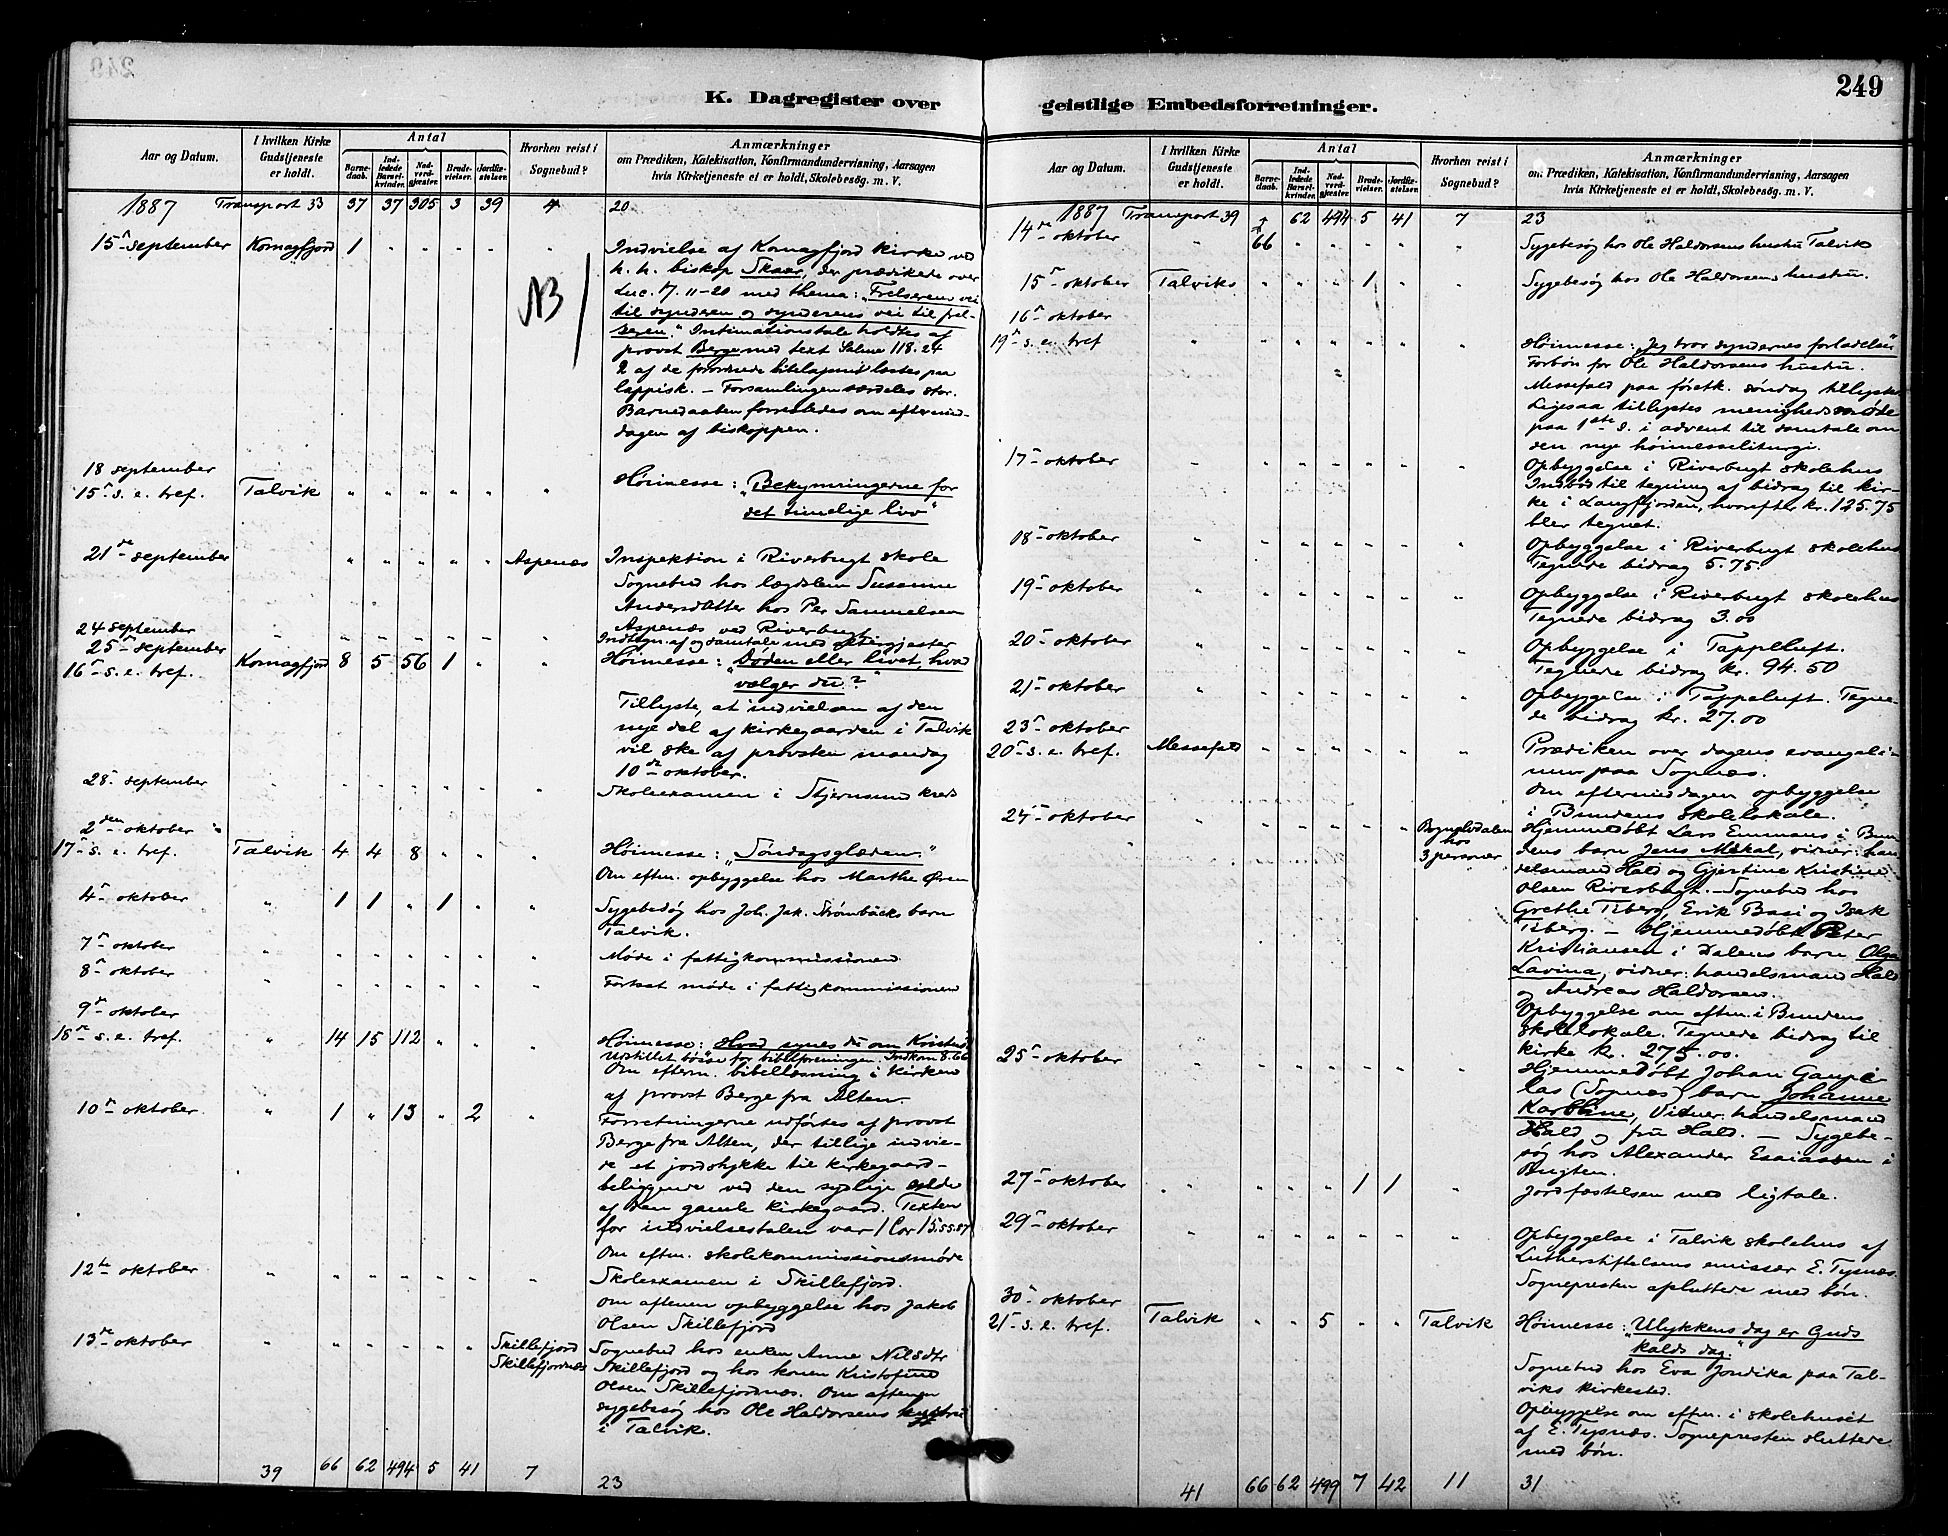 249
K. Dagregister over
Aar og Datum.
I hvilken Kirke Gudstjeneste er holdt.
Antal
Barnedaab.
Indledede Barselkvinder.
Nadverdgjæster.
Brudevielser.
Jordfæstelser.
Hvorhen reist i Sognebud?
Anmærkninger
om Prædiken, Katekisation, Konfirmandundervisning, Aarsagen
hvis Kirketjeneste ei er holdt, Skolebesøg. m. V.
1887 Transport 33 37 37 305 3 39 4 20
15de september Komagfjord 1 Indvielse af Komagfjord kirke ved
h. h. biskop Skaar, der prædikede over
Luc. 17. 11-20 med thema: "Frelserens vei
til synderen og synderens vei til frel-
seren." Intimationstale holdtes af
provst Berge med text Salme 118.24
2 af de forordnede bibellæsninger læstes paa
lappisk. - Forsamlingen særdeles stor.
Barnedaaben forrettedes om eftermid-
dagen af biskoppen.
NB
18 september
15de s. e. tref. Talvik Høimesse: "Bekymringerne for
det timelige liv"
21de september Aspenæs Inspektion i Riverbugt skole
Sognebud hos lægdslem Susanne
Andersdatter hos Per Samuelsen
Aspenæs ved Riverbugt
24 september Indtegn. af og samtale med altergjæster
25de september
16de s. e. tref. Komagfjord 8 5 56 1 Høimesse: "Døden eller livet, hvad
vælger du?"
Tillyste, at indvielsen af den
nye del af kirkegaarden i Talvik
vil ske af provsten mandag
10de oktober.
28de september Skoleexamen i Stjernsund kreds
2den oktober
17de s. e. tref. Talvik 4 4 8 Høimesse: "Søndagsglæden."
Om eftm. opbyggelse hos Marthe Øren
4de oktober 1 1 1 Sygebesøg hos Joh. Jak. Strømbäcks barn
Talvik.
7de oktober Møde i fattigkommissionen
8de oktober Fortsat møde i fattigkommissionen
9de oktober
18de s. e. tref. 14 15 112 Høimesse: Hvad synes du om Kristus
Opstillet bøsse for bibelforeningen. Indkom 8.66
Om efterm. bibellæsning i kirken
af provst Berge fra Alten.
10de oktober 1 13 2 Forretningerne udførtes af provst
Berge fra Alten, der tillige indvie-
de et jordstykke til kirkegaard-
beliggende ved den sydlige side
af den gamle kirkegaard. Texten
for indvielsestalen var 1 Cor 15.55.57
Om eftm. skolekommissionsmøde
12te oktober Skoleexamen i Skillefjord.
Om aftenen opbyggelse hos Jakob
Olsen Skillefjord
13de oktober Skillefjord Skillefjordnæs Sognebud hos enken Anne Nilsdtr
Skillefjord og hos konen Kristofine
Olsen Skillefjordnæs. Om aftenen
sygebesøg hos Ole Haldorsens hustru
i Talvik.
39 66 62 494 5 41 7 23
249
geistlige Embedsforretninger.
Aar og Datum.
I hvilken Kirke Gudstjeneste er holdt.
Antal
Barnedaab.
Indledede Barselkvinder.
Nadverdgjæster.
Brudevielser.
Jordfæstelser.
Hvorhen reist i Sognebud?
Anmærkninger
om Prædiken, Katekisation, Konfirmandundervisning, Aarsagen
hvis Kirketjeneste ei er holdt, Skolebesøg. m. V.
1887 Transport 39 66 62 494 5 41 7 23
14de oktober Sygebesøg hos Ole Haldorsens hustru Talvik
15de oktober Talviks 1 Sygebesøg hos Ole Haldorsens hustru.
16de oktober
19de s. e. tref Høimesse: "Jeg tror syndernes forladelse"
Forbøn for Ole Haldorsens hustru.
Messefald paa førstk. søndag tillystes
Ligesaa tillystes menighedsmøde
paa 1ste s. i advent til samtale om
den nye høimesseliturgi.
17de oktober Opbyggelse i Riverbugt skolehus
Indbød til tegning af bidrag til kir-
ke i Langfjorden, hvorefter kr. 125.75
blev tegnet.
18de oktober Opbyggelse i Riverbugt skolehus
Tegnede bidrag 5.75.
19de oktober Opbyggelse i Riverbugt skolehus
Tegnede bidrag 3.00
20de oktober Opbyggelse i Tappeluft.
Tegnede bidrag kr. 94.50
21de oktober Opbyggelse i Tappeluft. Tegne-
de bidrag kr. 27.00
23de oktober
20de s. e. tref. Messefald Prædiken over dagens evangeli-
um paa Sopnæs.
Om eftermiddagen opbyggelse
i Bundens skolelokale.
24de oktober Bognelvdalen hos 3 personer Hjemmedøbt Lars Emmans i Bun-
dens barn Jens Mikal, vidner: han-
delsmand Hald og Gjertine Kristine
Olsen Riverbugt. - Sognebud hos
Grethe Isberg, Erik Basi og Isak
Isberg. - Hjemmedøbt Peter
Kristiansen i Dalens barn Olga
Lavina, vidner: handelsmand Hald
og Andreas Haldorsen.
Opbyggelse om eftm. i Bundens
skolelokale. Tegnede bidrag til
kirke kr. 275.00.
25de oktober Hjemmedøbt Johan
(Sopnæs) barn Johanne
Karoline, Vidner: handelsmand
Hald og fru Hald. - Sygebe-
søg hos Alexander Esaiassen i
Bugten.
27de oktober 1 1 Jordfæstelsen med ligtale.
29de oktober Opbyggelse i Talvik skolehus af
Lutherstiftelsens emissær E. Tysnæs.
Sognepresten afsluttede med bøn.
30te oktober
21de s. e. tref. Talvik 5 Talvik Høimesse: "Ulykkens dag er Guds
kalds dag."
Sognebud hos Eva Jondika paa Tal-
viks kirkested.
Opbyggelse om eftm. i skolehuset
af E. Tysnæs. Sognepresten sluttede
med bøn.
41 66 62 499 7 42 11 31